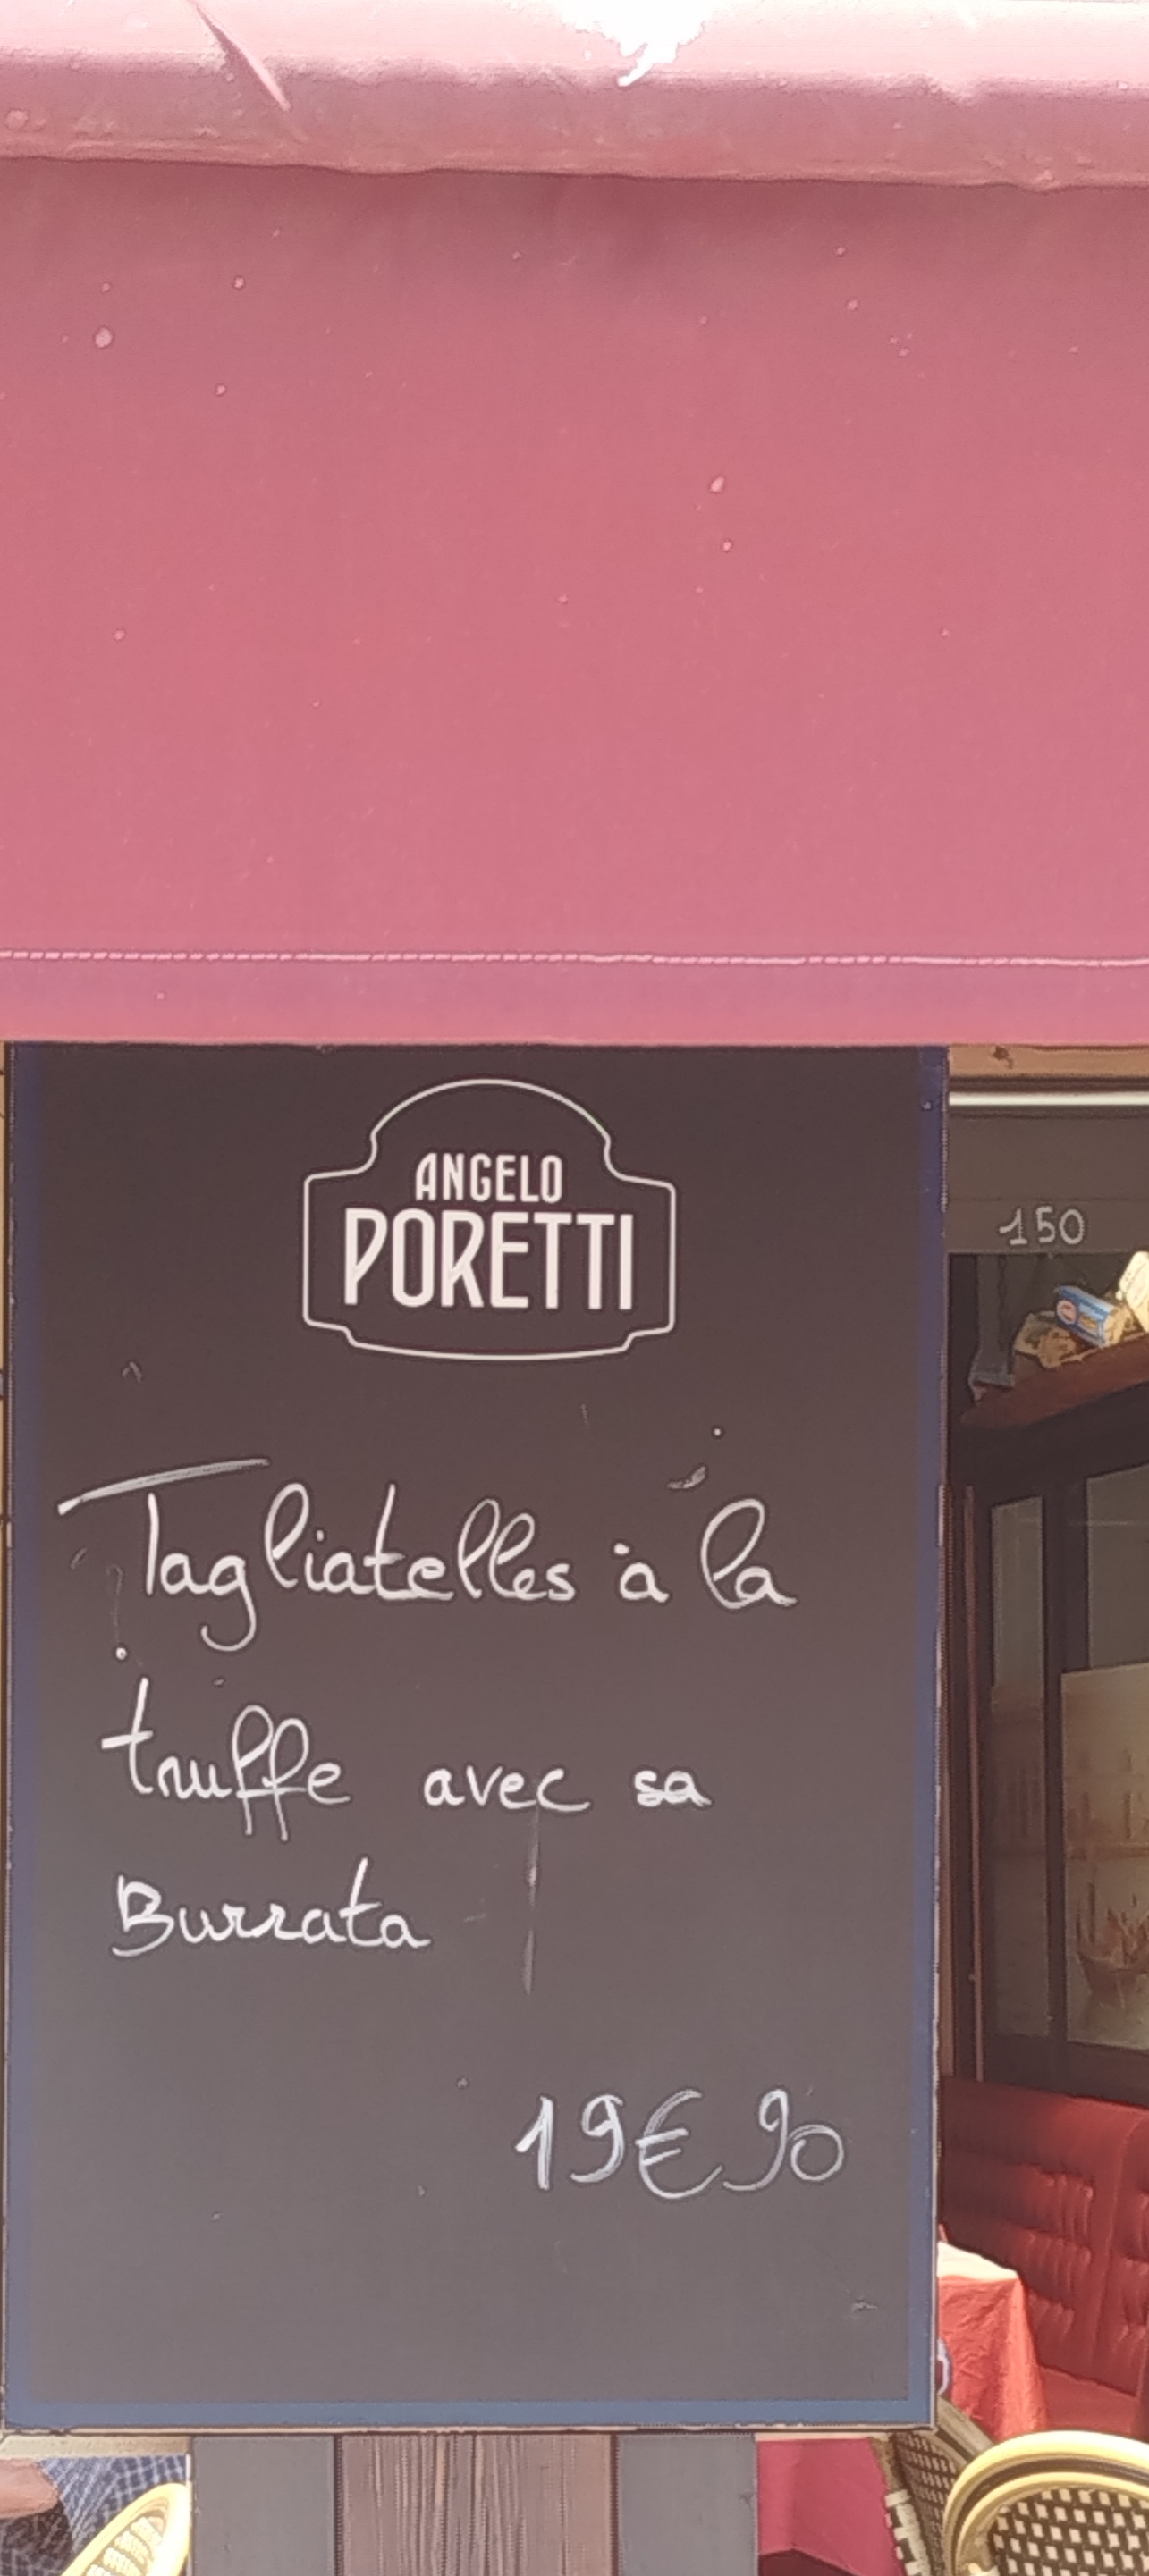 ANGELO
PORETTI
150
Tagliatelles à la
truffe avec sa
Burrata
19€90